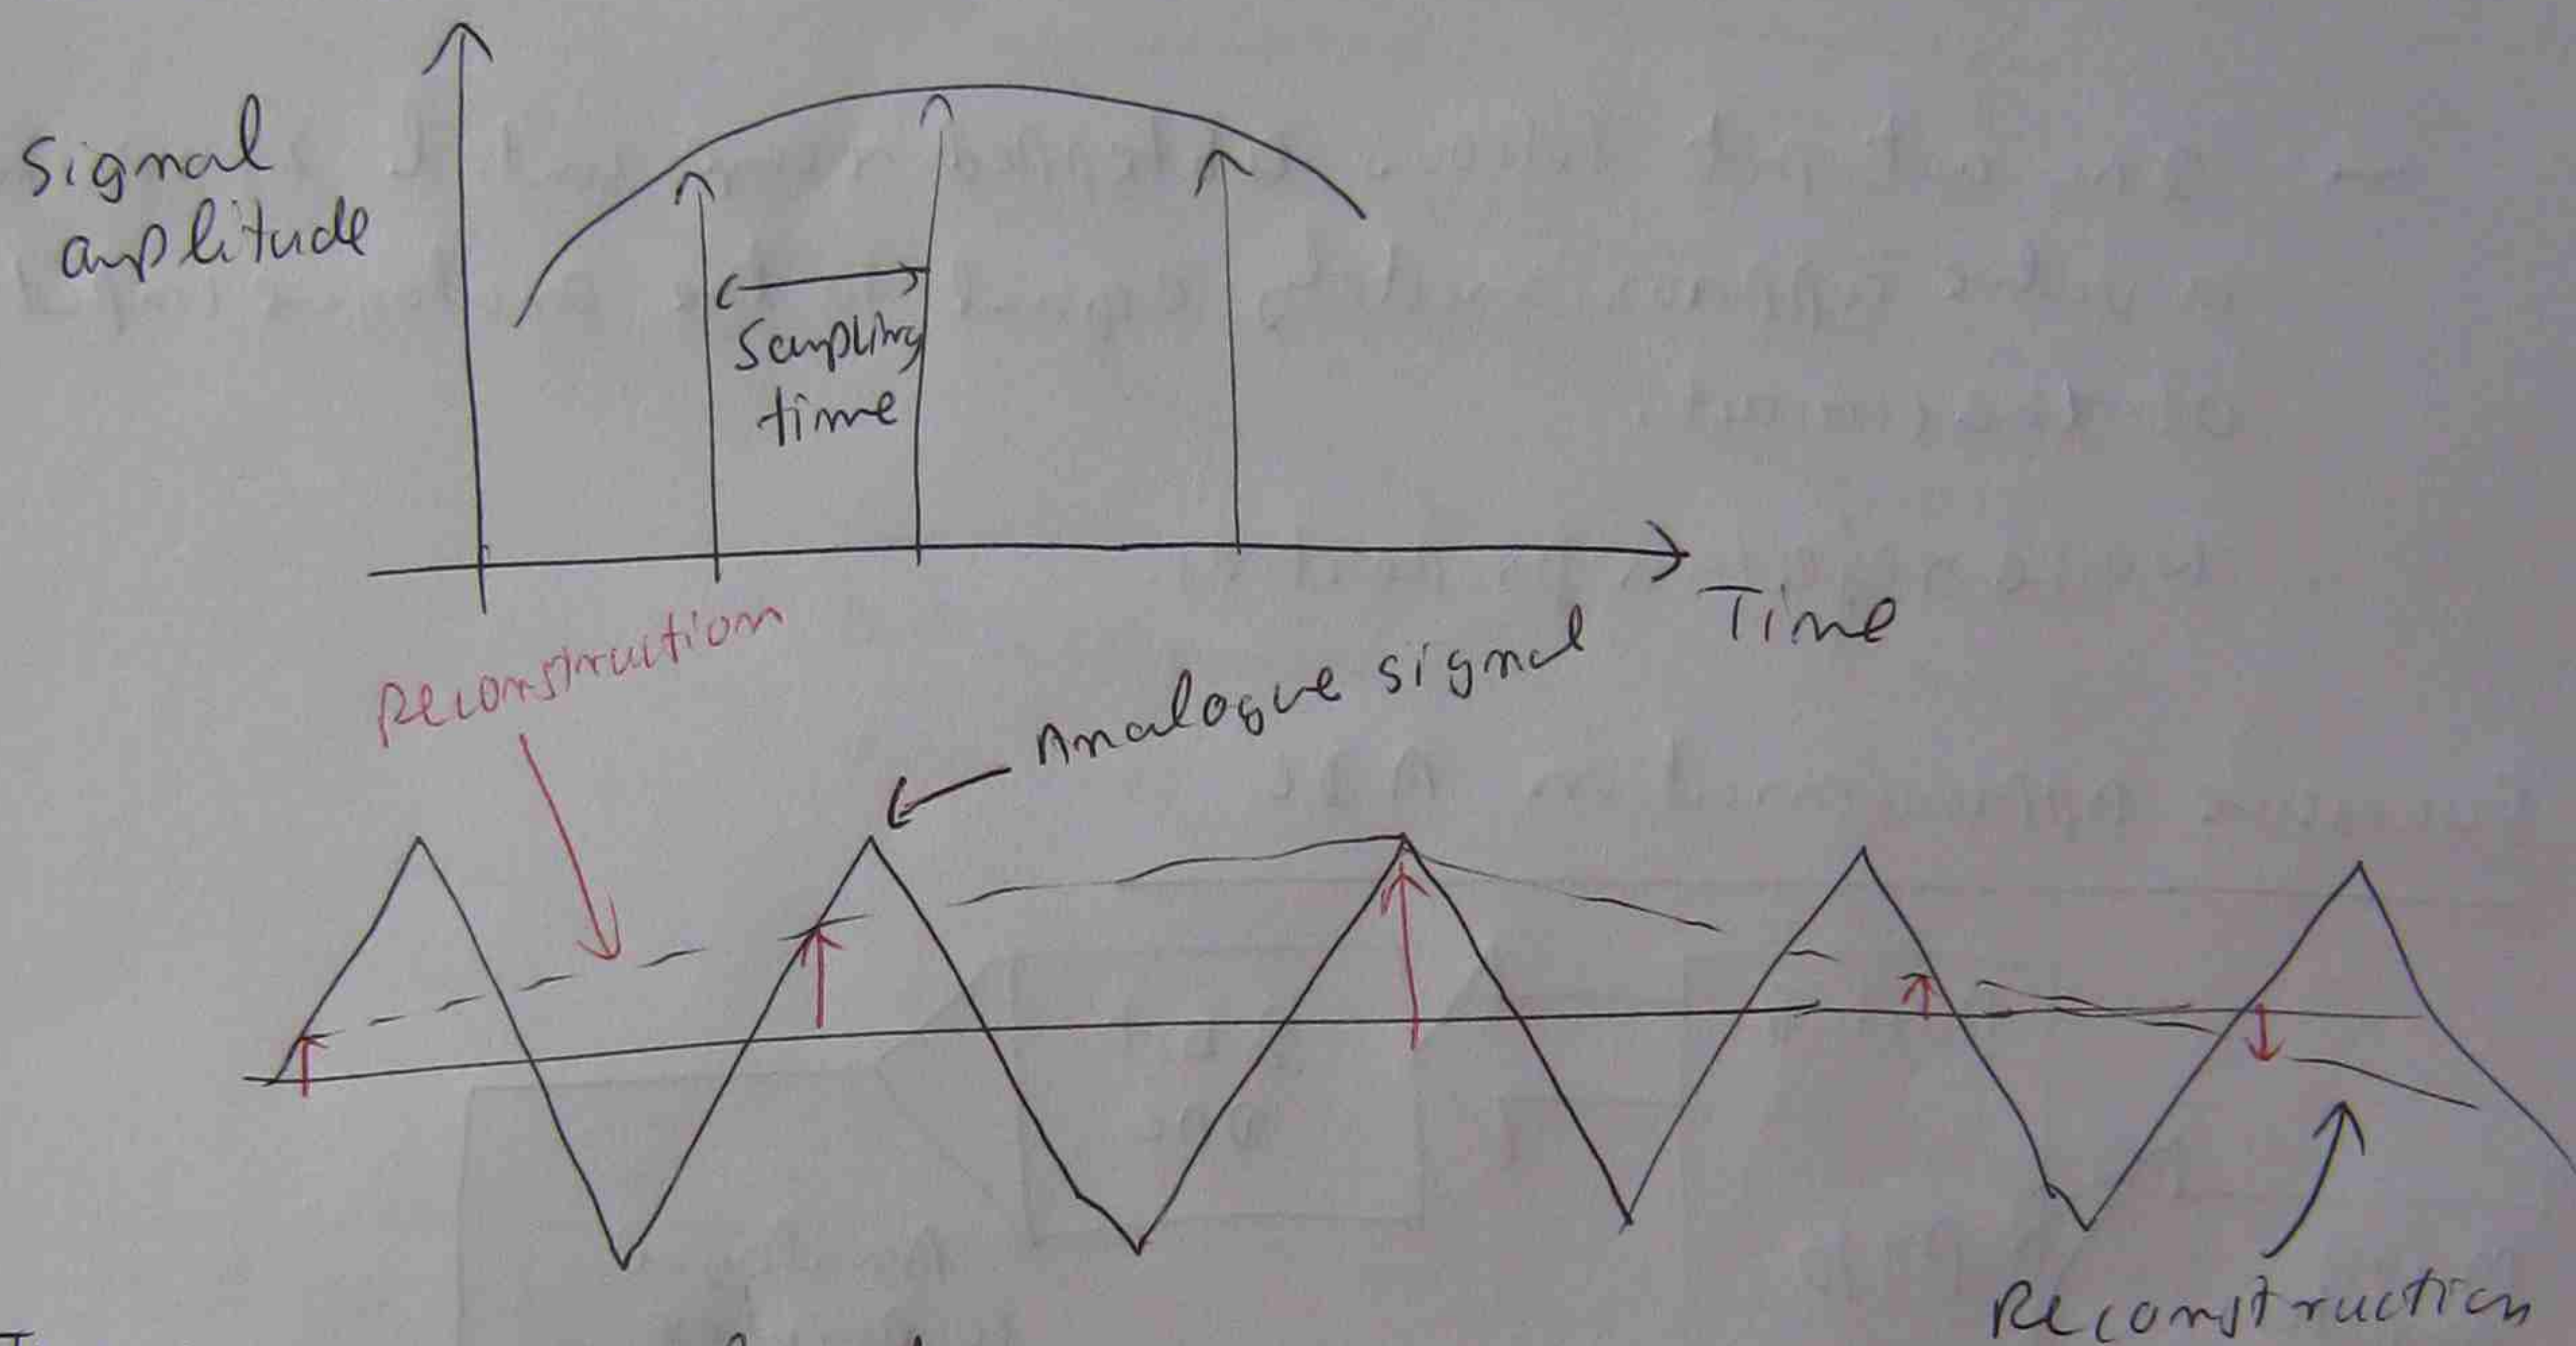 Signal
amplitude
Sampling
time
Time
Reconstruction
Analogue signal
Reconstruction